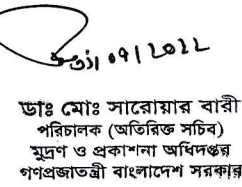 ৩১/০৭/২০২২
ডাঃ মোঃ সারোয়ার বারী
পরিচালক (অতিরিক্ত সচিব)
মুদ্রণ ও প্রকাশনা অধিদপ্তর
গণপ্রজাতন্ত্রী বাংলাদেশ সরকার